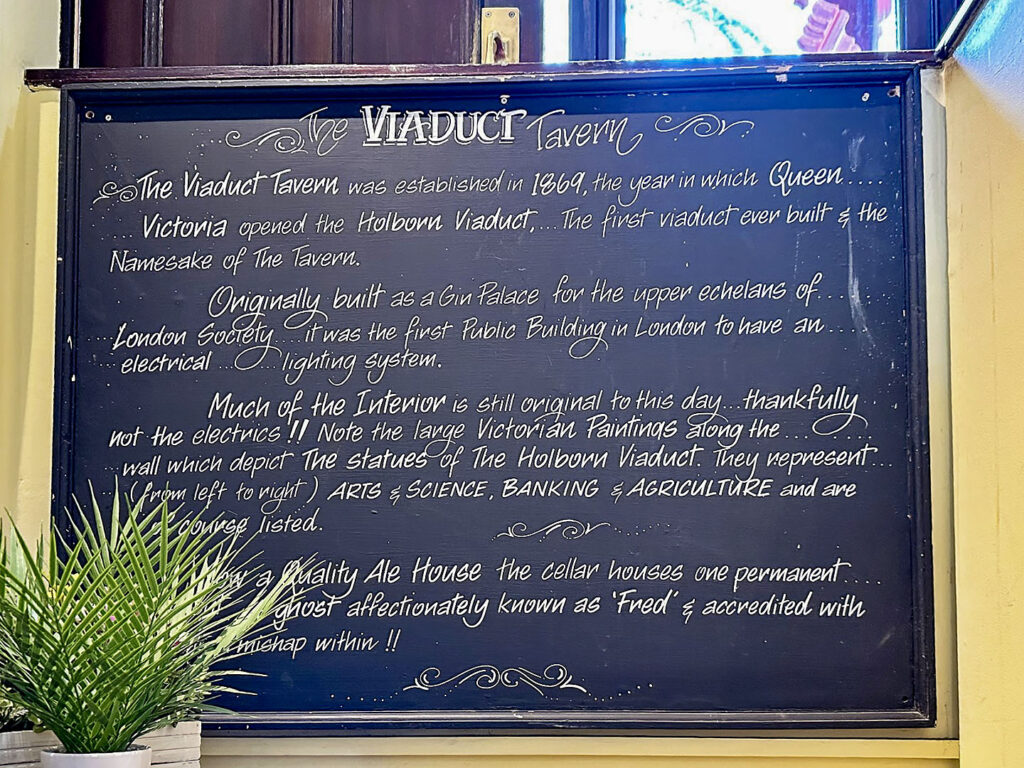 The VIADUCT Tavern
The Viaduct Tavern was established in 1869, the year in which Queen ....
... Victoria opened the Holborn Viaduct,... The first viaduct ever built & the
Namesake of The Tavern.
Originally built as a Gin Palace for the upper echelans of ....
London Society ... it was the first Public Building in London to have an ....
electrical ...... lighting system.
Much of the Interior is still original to this day ... thankfully
not the electrics !! Note the large Victorian Paintings along the ......
wall which depict The statues of The Holborn Viaduct. They represent ...
(from left to right) ARTS & SCIENCE, BANKING & AGRICULTURE and are
course listed.
a Quality Ale House the cellar houses one permanent ....
ghost affectionately known as 'Fred' & accredited with
mishap within !!